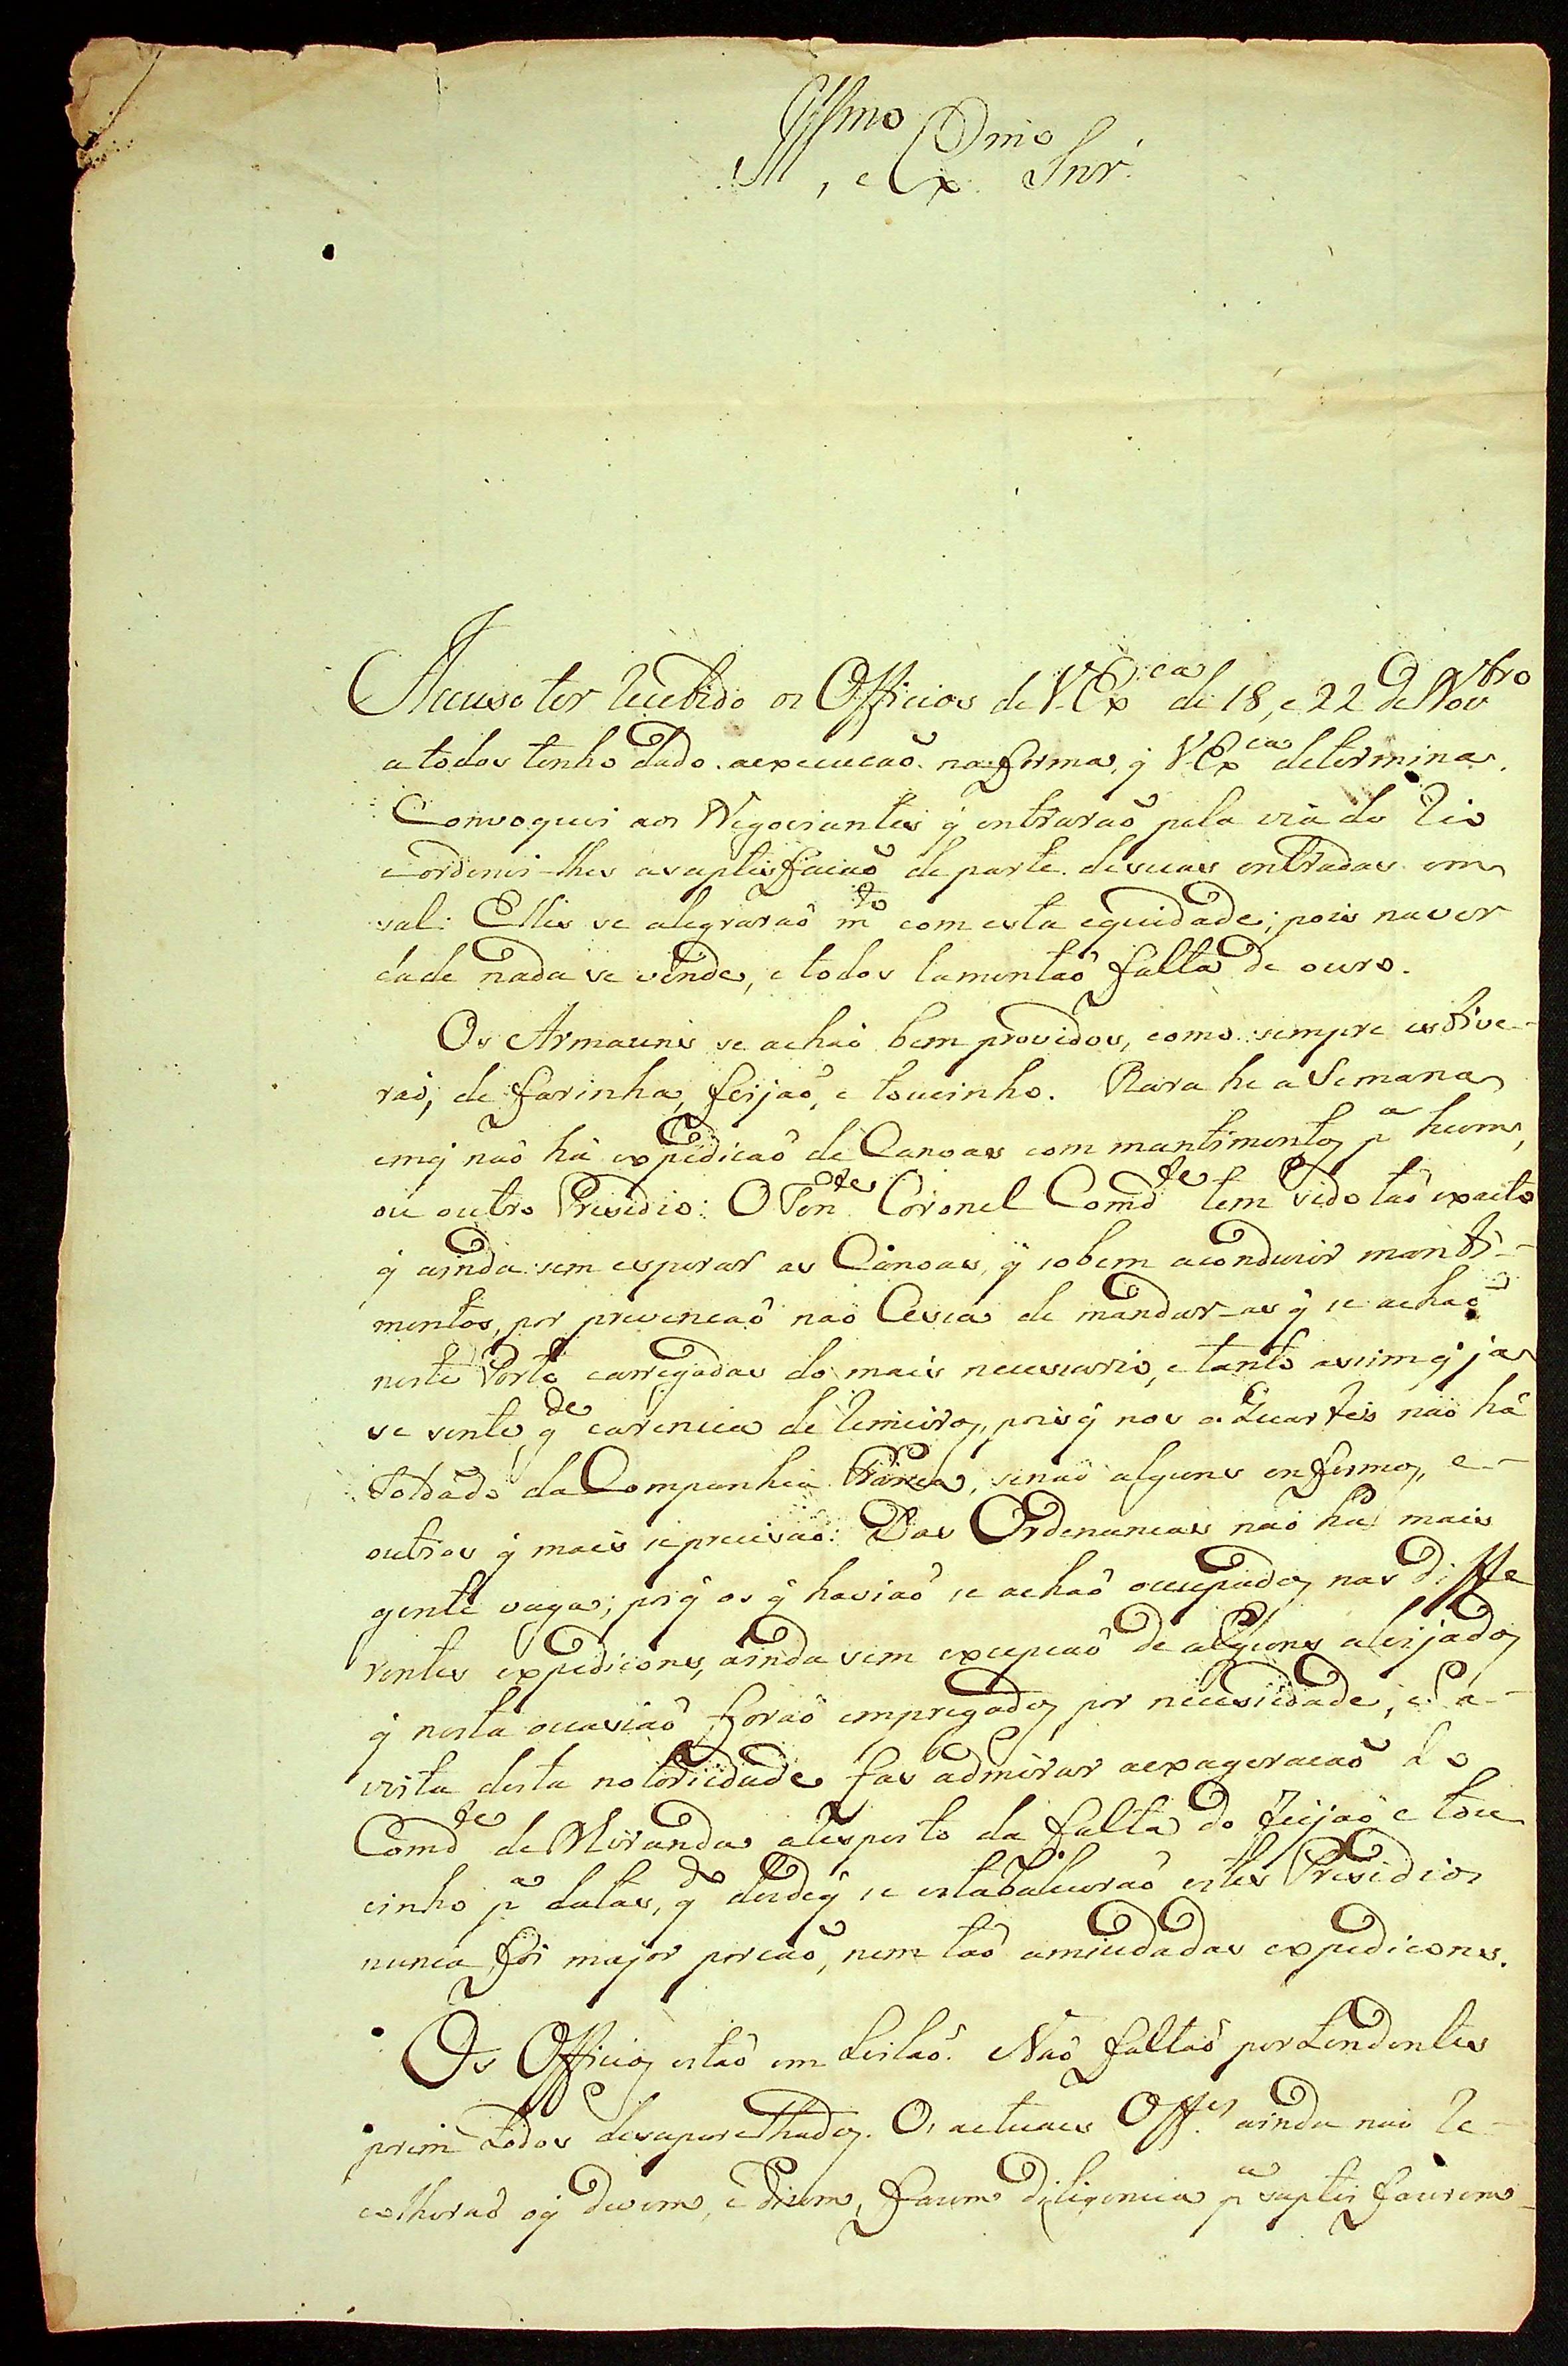 Illmo, e Exmo Snr.
Accuso ter recebido os Officios de V. Exca de 18, e 22 de Novbro
a todos tenho dado aexecucaõ na forma, q̃ V. Exca determina.
Convoquei aos Negociantes q̃ entraraõ pela via do Rio
eordenei-lhes asaptisfacaõ de parte desuas entradas em
sal: Elles se alegraraõ mto com esta equidade; pois naver
dade nada se vende, e todos lamentaõ falta de ouro.
Os Armazens se achaõ bem providos, como sempre estive-
raõ, de farinha, feijaõ, e toucinho. Rara he a Semana
emq̃ naõ há expedicaõ de Canoas com mantimentos pa hum,
ou outro Presidio: O Tente Coronel Comdte tem sido taõ exacto
q̃ ainda sem esperar as Canoas, q̃ sobem aconduzir manti-
mentos, por prevencaõ naõ Cessa de mandar-as q̃ se achaõ
neste Porto carregadas do mais necessario, e tanto assim q̃ ja
se sente gde carencia de remeiros, pois q̃ nos Quarteis naõ há
Soldado da Companhia Franca, senaõ alguns enfermos, e
outros q̃ mais seprecisaõ: Das Ordenancas naõ há mais
gente vaga; porq̃ os q̃ haviaõ se achaõ occupados nas diffe
rentes expedicoens, ainda sem excepcaõ de alguns aleijados
q̃ nesta occasiaõ foraõ empregados por necessidade, e a
vista desta notoriedade fas admirar aexageracaõ do
Comdte de Miranda arespeito da falta do feijaõ e tou
cinho pa datas, qdo desdeq̃ se estabaleceraõ estes Presidios
nunca foi major porcaõ, nem taõ amiudadas expedicoens.
Os Officios estaõ em Leilaõ. Naõ faltaõ pertendentes
porem todos desaparelhados. Os actuaes Offes ainda naõ re-
colheraõ oq̃ devem, e dizem, fazem diligencia pa saptisfazerem